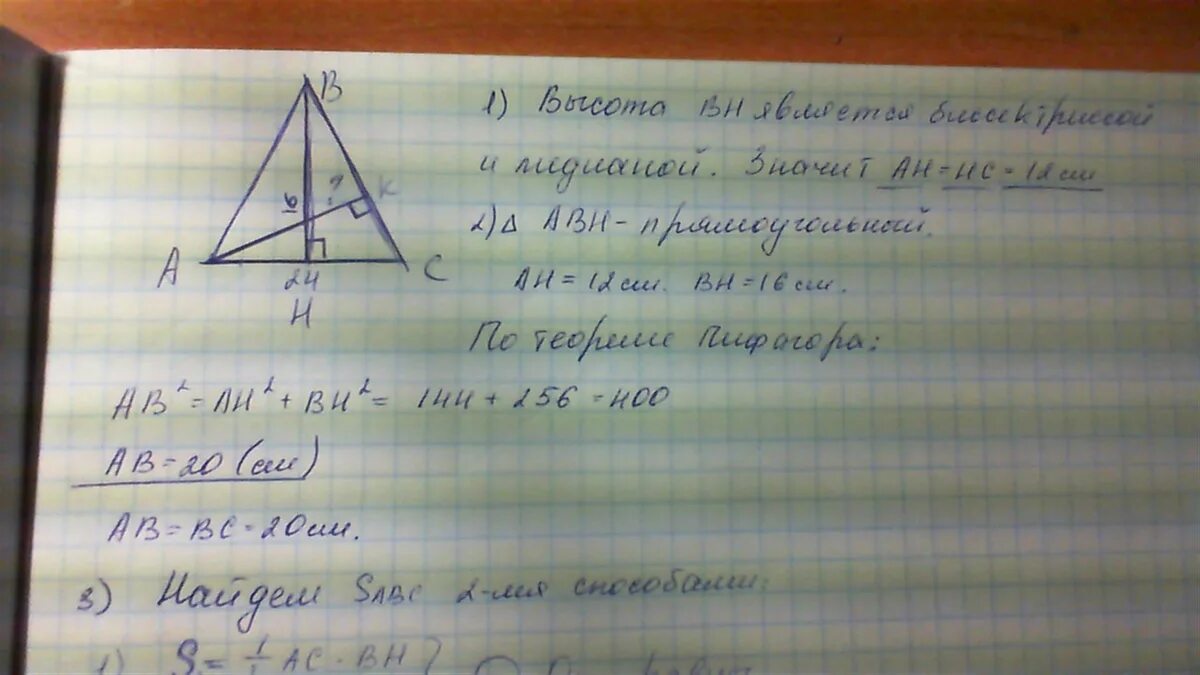 B
1) Высота BH является биссектрисой
и медианой. Значит AH = HC = 12 см
К
?
16
2) Δ ABH - прямоугольный.
A
C
24
H
AH = 12 см. BH = 16 см.
По теореме Пифагора:
AB² = AH² + BH² = 144 + 256 = 400
AB = 20 (см)
AB = BC = 20 см.
3) Найдем SABC 2-мя способами:
1) S = AC · BH